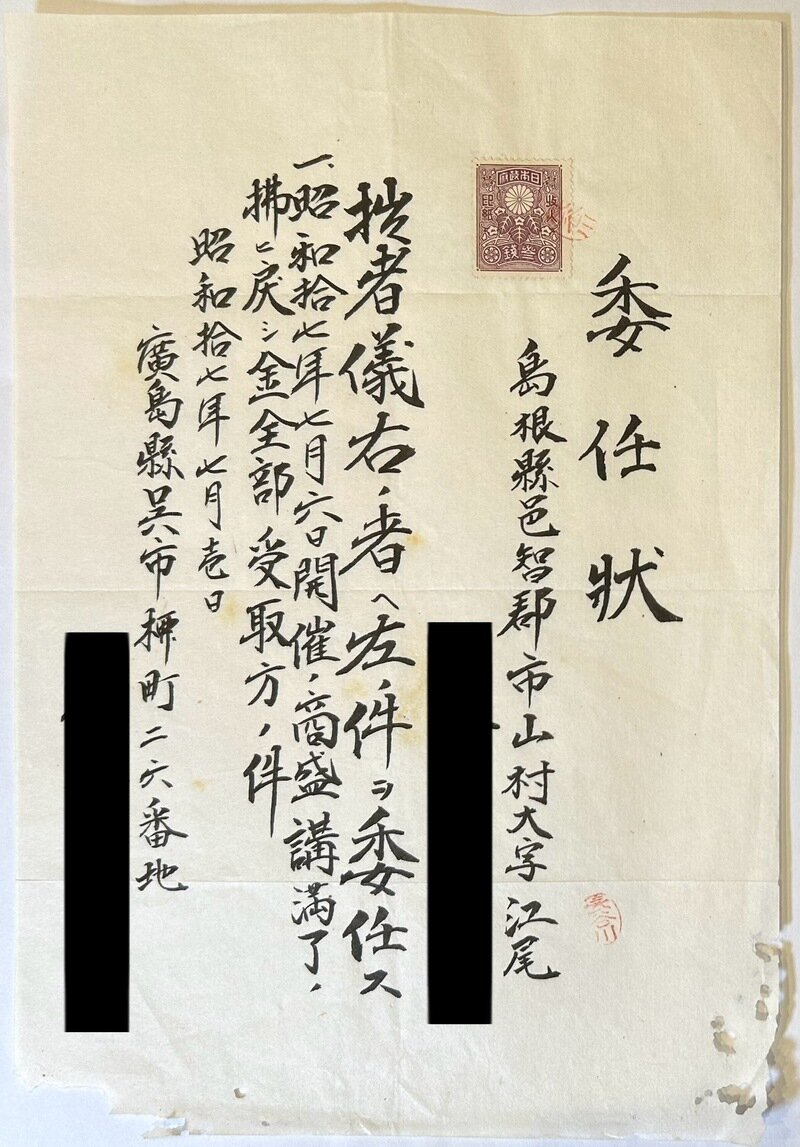 委任狀
日本政府
収入
印紙
参錢
島根縣邑智郡市山村大字江尾
拙者儀右ノ者ヘ左ノ件ヲ委任ス
一、昭和拾七年七月六日開催ノ商盛講満了ノ
拂ヒ戻シ金全部受取方ノ件
昭和拾七年七月壱日
廣島縣呉市 町二六番地
長谷川